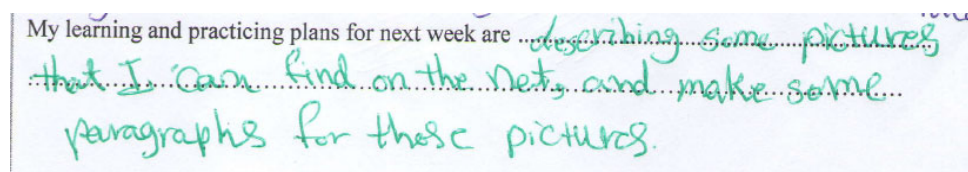 My learning and practicing plans for next week are ...describing some pictures
that I can find on the net, and make some
paragraphs for those pictures.